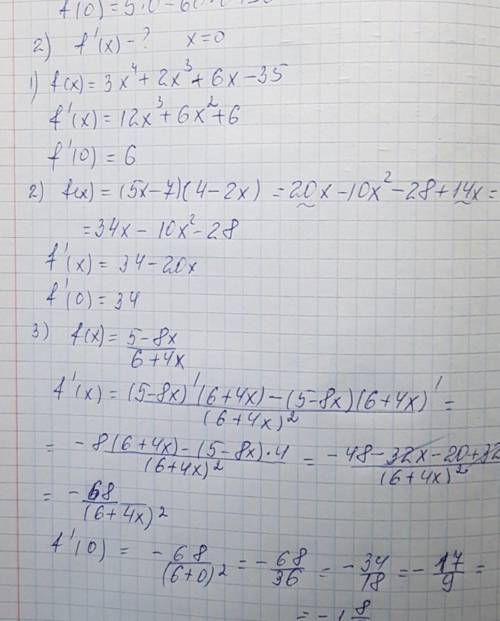 f(0)=5·0-60·0
2) f'(x)-? x=0
1) f(x)=3x⁴+2x³+6x-35
f'(x)=12x³+6x²+6
f'(0)=6
2) f(x)=(5x-7)(4-2x)=20x-10x²-28+14x=
=34x-10x²-28
f'(x)=34-20x
f'(0)=34
3) f(x)=(5-8x)/(6+4x)
f'(x)=((5-8x)'(6+4x)-(5-8x)(6+4x)')/(6+4x)²=
=(-8(6+4x)-(5-8x)·4)/(6+4x)²=(-48-32x-20+32)/(6+4x)²
=-68/(6+4x)²
f'(0)=-68/(6+0)²=-68/36=-34/18=-17/9=
=-1 8